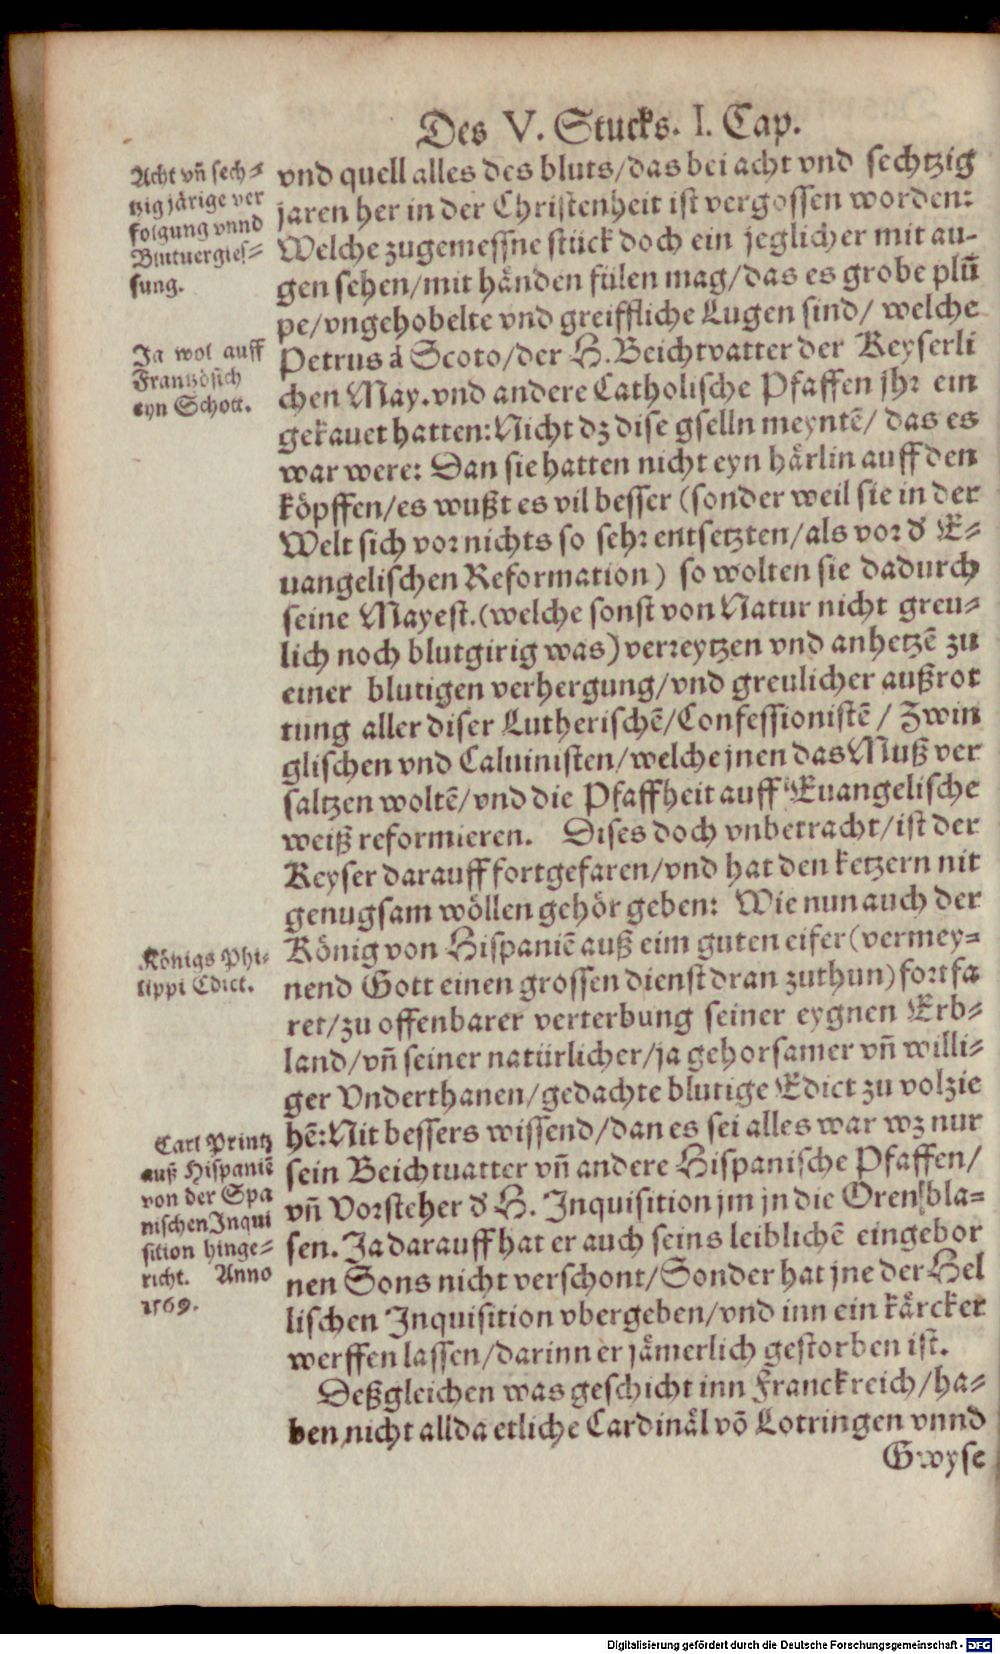 Des V. Stucks. I. Cap.
Acht vñ sech-
tzig järige ver
folgung vnnd
Blutuergies-
sung.
vnd quell alles des bluts/das bei acht vnd sechtzig
jaren her in der Christenheit ist vergossen worden:
Welche zugemessne stück doch ein jeglicher mit au-
gen sehen/mit händen fülen mag/das es grobe plũ
pe/vngehobelte vnd greiffliche Lugen sind/ welche
Ja wol auff
Frantzösich
eyn Schott.
Petrus á Scoto/der H. Beichtvatter der Keyserli
chen May. vnd andere Catholische Pfaffen jhr ein
gekauet hatten: Nicht dz dise gselln meyntẽ/ das es
war were: Dan sie hatten nicht eyn härlin auff den
köpffen/es wußt es vil besser (sonder weil sie in der
Welt sich vor nichts so sehr entsetzten/als vor d̕ E-
uangelischen Reformation) so wolten sie dadurch
seine Mayest. (welche sonst von Natur nicht greu-
lich noch blutgirig was) verreytzen vnd anhetzẽ zu
einer blutigen verhergung/vnd greulicher außrot
tung aller diser Lutherischẽ/Confessionistẽ/ Zwin
glischen vnd Caluinisten/welche jnen das Muß ver
saltzen woltẽ/vnd die Pfaffheit auff Euangelische
weiß reformieren. Dises doch vnbetracht/ist der
Keyser darauff fortgefaren/vnd hat den ketzern nit
genugsam wöllen gehör geben: Wie nun auch der
Königs Phi-
lippi Edict.
König von Hispaniẽ auß eim guten eifer (vermey-
nend Gott einen grossen dienst dran zuthun) fortfa
ret/zu offenbarer verterbung seiner eygnen Erb-
land/vñ seiner natürlicher/ja gehorsamer vñ willi-
ger Vnderthanen/gedachte blutige Edict zu volzie
Carl Printz
auß Hispaniẽ
von der Spa
nischen Inqui
sition hinge-
richt. Anno
1569.
hẽ: Nit bessers wissend/dan es sei alles war wz nur
sein Beichtuatter vñ andere Hispanische Pfaffen/
vñ Vorsteher d̕ H. Inquisition jm jn die Oren bla-
sen. Ja darauff hat er auch seins leiblichẽ eingebor
nen Sons nicht verschont/Sonder hat jne der Hel
lischen Inquisition vbergeben/vnd inn ein kärcker
werffen lassen/darinn er jämerlich gestorben ist.
Deßgleichen was geschicht inn Franckreich/ha-
ben nicht allda etliche Cardinäl võ Lotringen vnnd
Gwyse
Digitalisierung gefördert durch die Deutsche Forschungsgemeinschaft - DFG